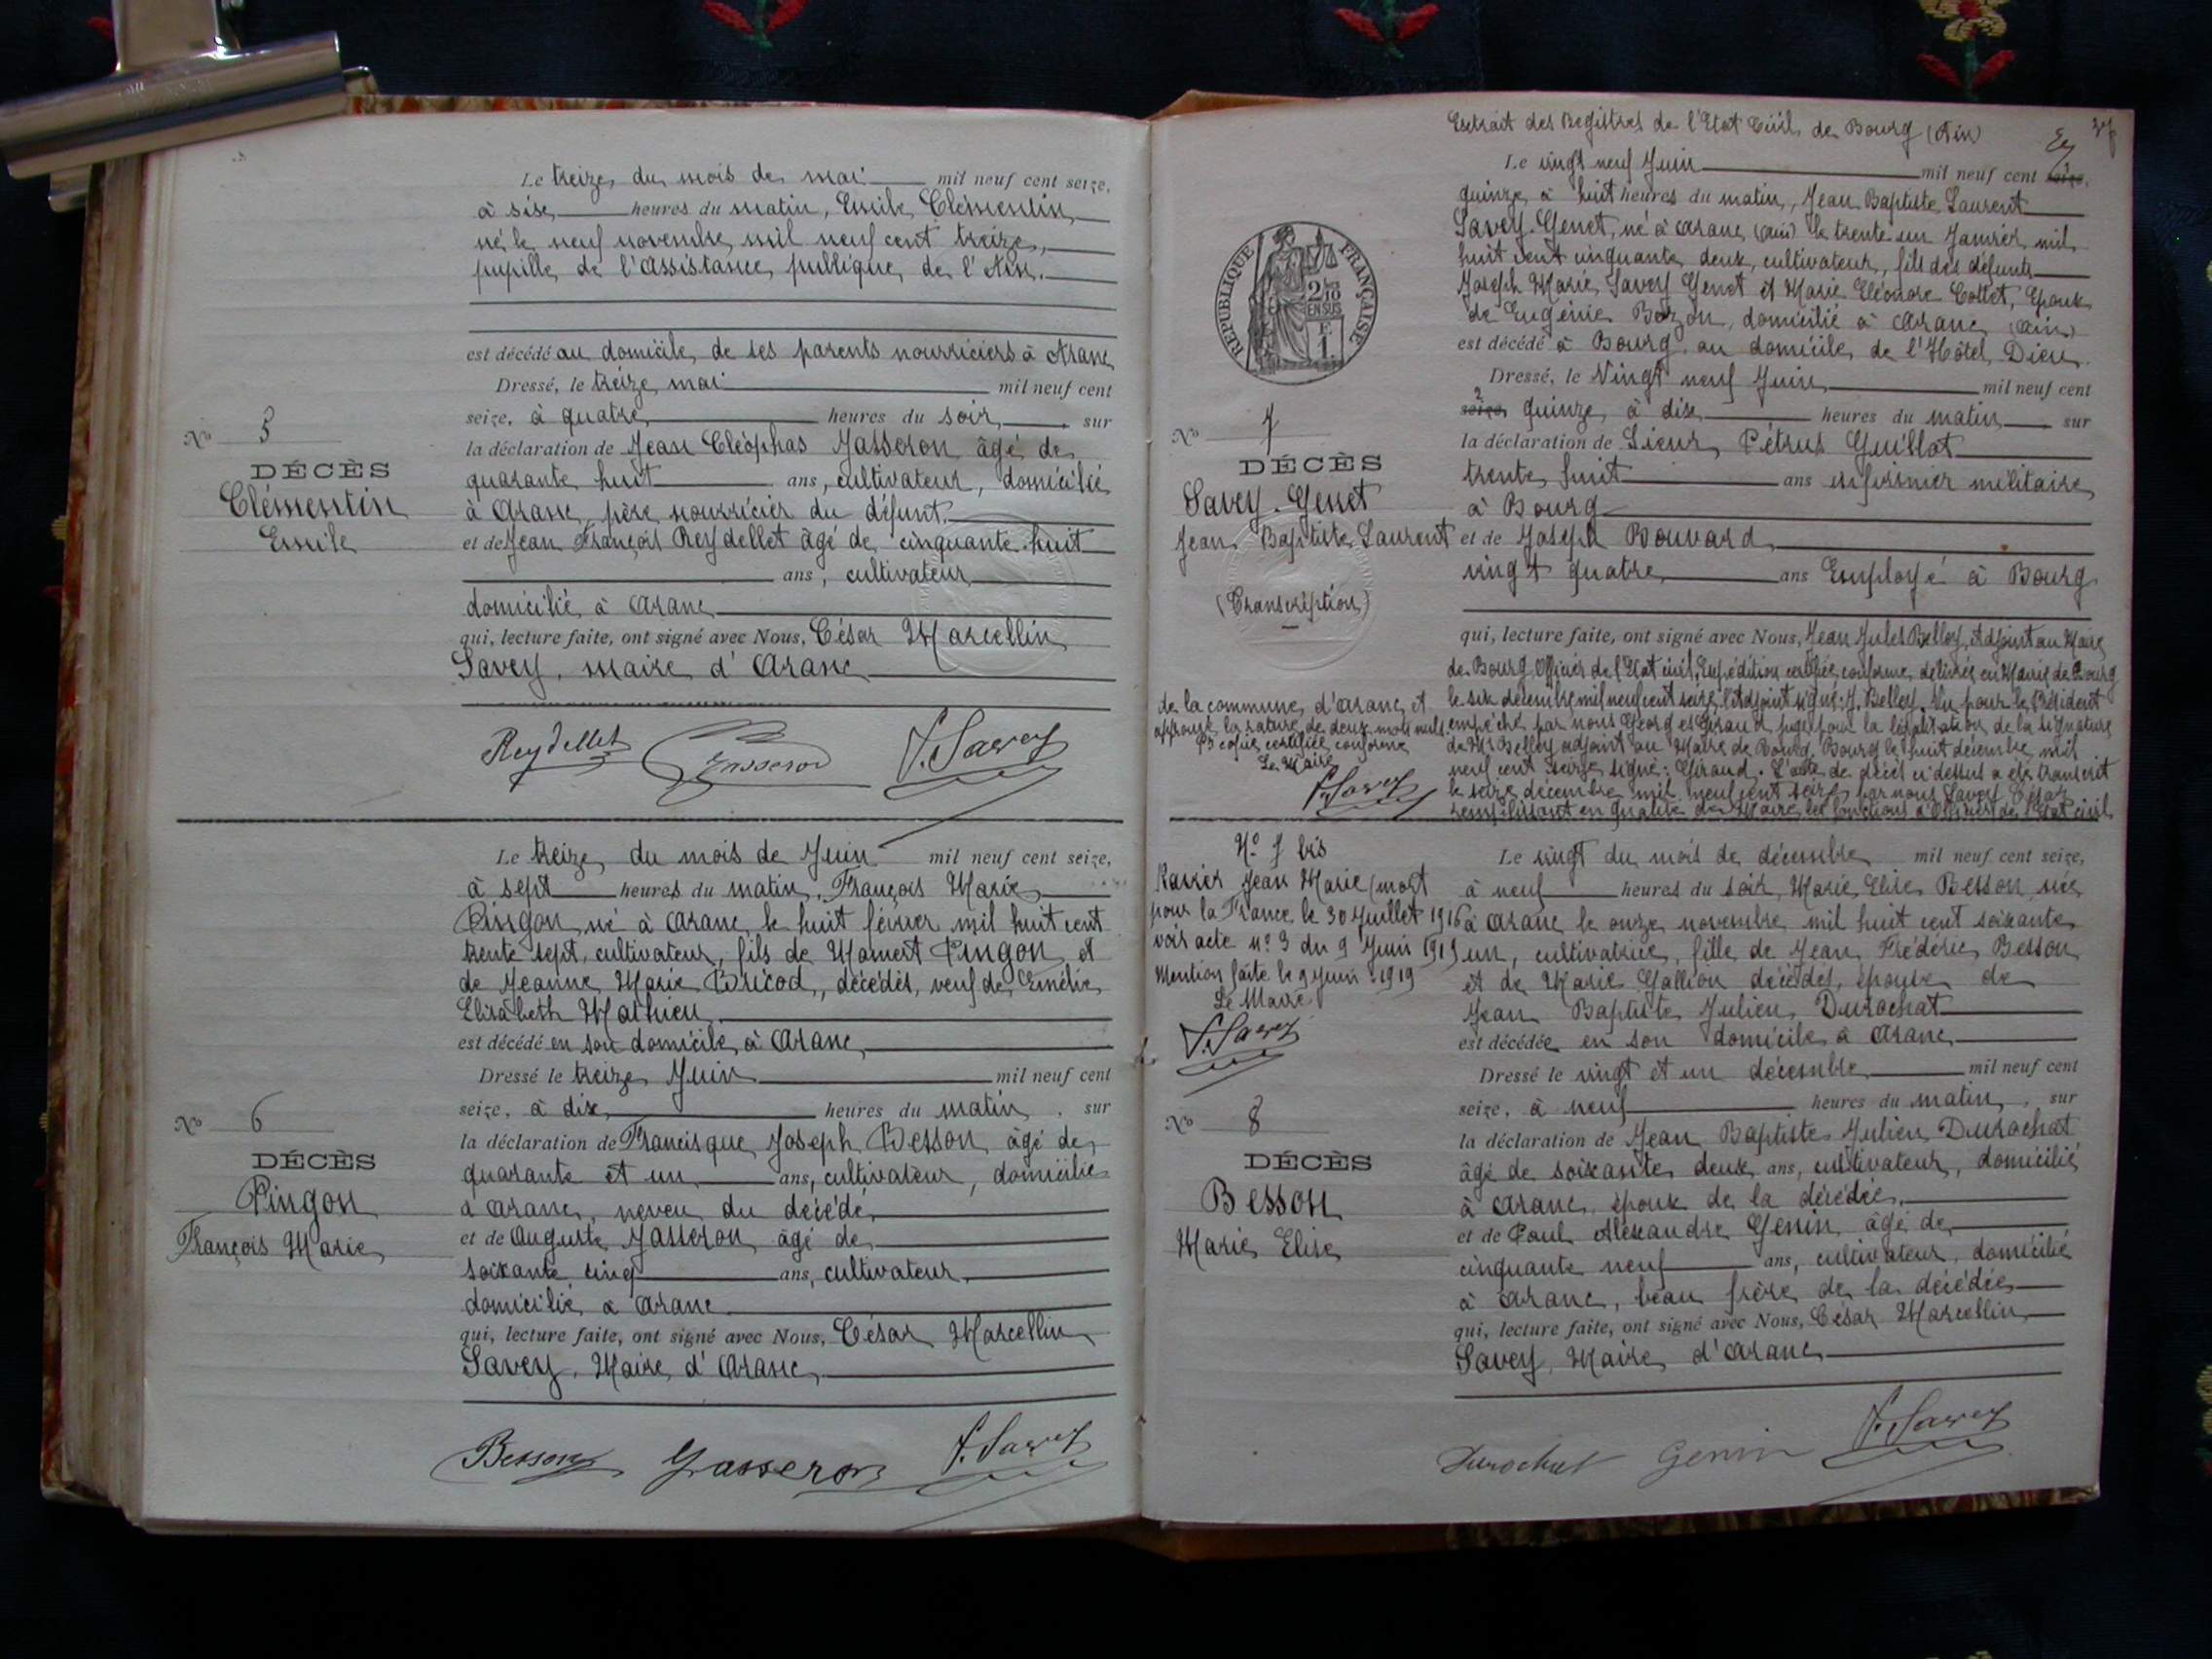 Le treize du mois de mai mil neuf cent seize,
à six heures du matin, Emile Clémentin
né le neuf novembre mil neuf cent treize,
pupille de l'Assistance publique de l'Ain.
est décédé au domicile de ses parents nourriciers à Aranc
Dressé, le treize mai mil neuf cent
seize, à quatre heures du soir, sur
la déclaration de Jean Cléophas Jasseron âgé de
quarante huit ans, cultivateur, domicilié
à Aranc, père nourricier du défunt.
et de Jean François Reydellet âgé de cinquante huit
ans, cultivateur
domicilié à Aranc
qui, lecture faite, ont signé avec Nous, César Marcellin
Savey, maire d'Aranc
Nº 5
DÉCÈS
Clémentin
Emile
Reydellet Jasseron Savey
Le treize du mois de Juin mil neuf cent seize,
à sept heures du matin, François Marie
Pingon né à Aranc le huit février mil huit cent
trente sept, cultivateur, fils de Mamert Pingon et
de Jeanne Marie Bricod, décédés, veuf de Emélie
Elisabeth Mathieu
est décédé en son domicile à Aranc
Dressé le treize Juin mil neuf cent
seize, à dix heures du matin, sur
la déclaration de Francisque Joseph Besson âgé de
quarante et un ans, cultivateur, domicilié
à Aranc, neveu du décédé,
et de Auguste Jasseron âgé de
soixante cinq ans, cultivateur
domicilié à Aranc
qui, lecture faite, ont signé avec Nous, César Marcellin
Savey, Maire d'Aranc
Nº 6
DÉCÈS
Pingon
François Marie
Besson Jasseron Savey
Extrait des Registres de l'Etat Civil de Bourg (Ain)
27
Le vingt neuf Juin mil neuf cent seize,
quinze à huit heures du matin, Jean Baptiste Laurent
Savey-Genet, né à Aranc (Ain) le trente un Janvier mil
huit cent cinquante deux, cultivateur, fils des défunts
Joseph Marie Savey Genet et Marie Eléonore Cottet, Epoux
de Eugénie Bozon, domicilié à Aranc (Ain)
est décédé à Bourg au domicile de l'Hôtel Dieu
Dressé, le Vingt neuf Juin mil neuf cent
seize, quinze à dix heures du matin sur
la déclaration de Sieurs Pétrus Guillot
trente huit ans infirmier militaire
à Bourg
et de Joseph Bouvard
vingt quatre ans Employé à Bourg
qui, lecture faite, ont signé avec Nous, Jean Jules Belley, Adjoint au Maire
de Bourg Officier de l'Etat civil, Expédition certifiée conforme, délivrée en Mairie de Bourg
le six décembre mil neuf cent seize, l'Adjoint signé: J. Belley. Vu pour le Président
empêché par nous Georges Giraud juge pour la légalisation de la signature
de Mr Belley adjoint au Maire de Bourg. Bourg le huit décembre mil
neuf cent seize signé: Giraud. L'acte de décès ci dessus a été transcrit
le seize décembre mil neuf cent seize par nous Savey César
remplissant en qualité de Maire les fonctions d'Officier de l'Etat civil
RÉPUBLIQUE FRANÇAISE
2/10
EN SUS
Nº 7
DÉCÈS
Savey-Genet
Jean Baptiste Laurent
(Transcription)
de la commune d'Aranc et
approuvé la rature de deux mots nuls
Copie certifiée conforme
Le Maire
Savey
Nº 7 bis
Ravier Jean Marie (mort
pour la France le 30 Juillet 1916
voir acte nº 3 du 9 Juin 1919
Mention faite le 9 Juin 1919
Le Maire
Savey
Le vingt du mois de décembre mil neuf cent seize,
à neuf heures du soir, Marie Elise Besson née
à Aranc le onze novembre mil huit cent soixante
un, cultivatrice, fille de Jean Frédéric Besson
et de Marie Gallion décédés, épouse de
Jean Baptiste Julien Durochat
est décédée en son domicile à Aranc
Dressé le vingt et un décembre mil neuf cent
seize, à neuf heures du matin, sur
la déclaration de Jean Baptiste Julien Durochat
âgé de soixante deux ans, cultivateur, domicilié
à Aranc, époux de la décédée,
et de Paul Alexandre Genin âgé de
cinquante neuf ans, cultivateur, domicilié
à Aranc, beau frère de la décédée
qui, lecture faite, ont signé avec Nous, César Marcellin
Savey, Maire d'Aranc
Nº 8
DÉCÈS
Besson
Marie Elise
Durochat Genin Savey